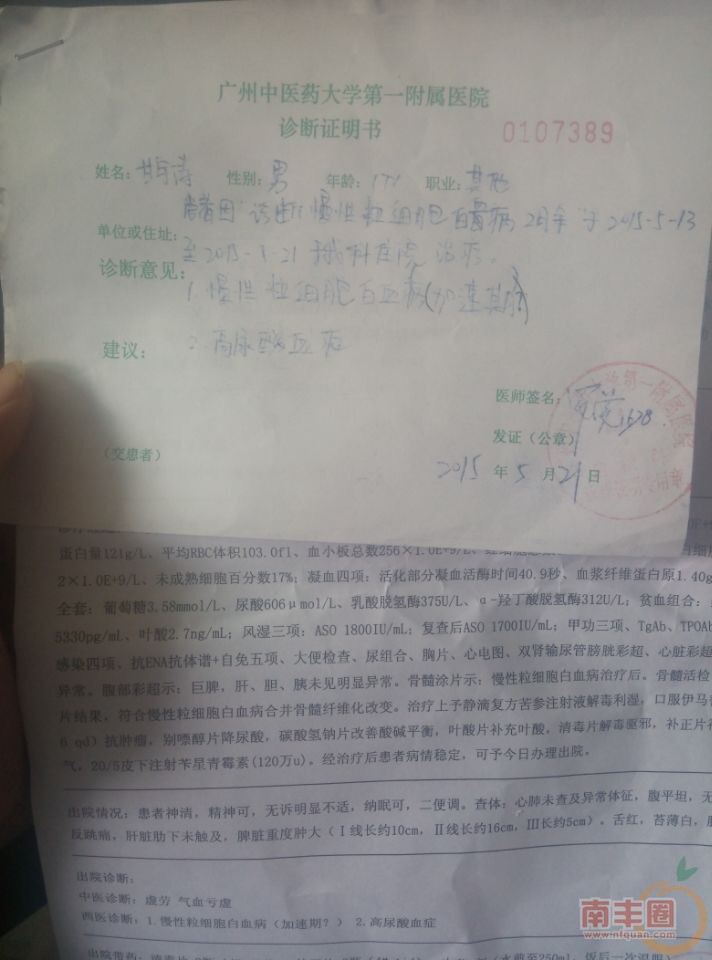 广州中医药大学第一附属医院
诊断证明书
0107389
姓名: 性别: 男 年龄: 职业: 其他
诊断 慢性粒细胞白血病 2月余 于 2015-5-13
单位或住址: 至2015-5-21于我科住院治疗。
诊断意见:
1.慢性粒细胞白血病(加速期?)
建议: 2.高尿酸血症
医师签名:
发证(公章)
(交患者)
2015 年 5 月 21 日
蛋白量121g/L、平均RBC体积103.0fl、血小板总数256×1.0E+9/L、
2×1.0E+9/L、未成熟细胞百分数17%; 凝血四项: 活化部分凝血活酶时间40.9秒、血浆纤维蛋白原1.40g
全套: 葡萄糖3.58mmol/L、尿酸606μmol/L、乳酸脱氢酶375U/L、α-羟丁酸脱氢酶312U/L; 贫血组合:
5330pg/mL、叶酸2.7ng/mL; 风湿三项: ASO 1800IU/mL; 复查后ASO 1700IU/mL; 甲功三项、TgAb、TPOAb
感染四项、抗ENA抗体谱+自免五项、大便检查、尿组合、胸片、心电图、双肾输尿管膀胱彩超、心脏彩超
异常。腹部彩超示: 巨脾, 肝、胆、胰未见明显异常。骨髓涂片示: 慢性粒细胞白血病治疗后。骨髓活检
片结果, 符合慢性粒细胞白血病合并骨髓纤维化改变。治疗上予静滴复方苦参注射液解毒利湿, 口服伊马
6 qd) 抗肿瘤, 别嘌醇片降尿酸, 碳酸氢钠片改善酸碱平衡, 叶酸片补充叶酸, 清毒片解毒驱邪, 补正片补
气, 20/5皮下注射苄星青霉素(120万u)。经治疗后患者病情稳定, 可予今日办理出院。
出院情况: 患者神清, 精神可, 无诉明显不适, 纳眠可, 二便调。查体: 心肺未查及异常体征, 腹平坦, 无
反跳痛, 肝脏肋下未触及, 脾脏重度肿大 (Ⅰ线长约10cm, Ⅱ线长约16cm, Ⅲ长约5cm)。舌红, 苔薄白,
出院诊断:
中医诊断: 虚劳 气血亏虚
西医诊断: 1.慢性粒细胞白血病 (加速期? ) 2.高尿酸血症
南丰圈
www.nfquan.com